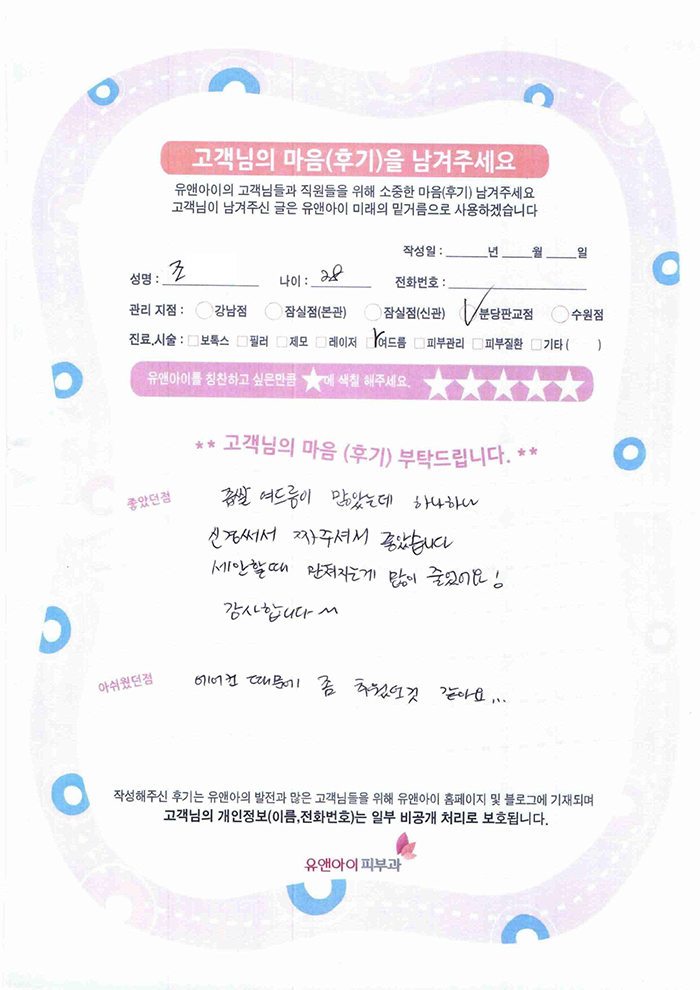 고객님의 마음(후기)을 남겨주세요
유앤아이의 고객님들과 직원들을 위해 소중한 마음(후기) 남겨주세요
고객님이 남겨주신 글은 유앤아이 미래의 밑거름으로 사용하겠습니다
작성일 : ______년 _____월 _____일
성명 : 조 나이 : 28 전화번호 :
관리 지점 : 강남점 잠실점(본관) 잠실점(신관) 분당판교점 수원점
진료,시술 : 보톡스 필러 제모 레이저 여드름 피부관리 피부질환 기타 ( )
유앤아이를 칭찬하고 싶은만큼 ★에 색칠 해주세요. ★★★★★
** 고객님의 마음 (후기) 부탁드립니다. **
좋았던점 좁쌀 여드름이 많았는데 하나하나
신경써서 짜주셔서 좋았습니다
세안할때 만져지는게 많이 줄었어요!
감사합니다~
아쉬웠던점 에어컨 때문에 좀 추웠던것 같아요...
작성해주신 후기는 유앤아의 발전과 많은 고객님들을 위해 유앤아이 홈페이지 및 블로그에 기재되며
고객님의 개인정보(이름,전화번호)는 일부 비공개 처리로 보호됩니다.
유앤아이피부과